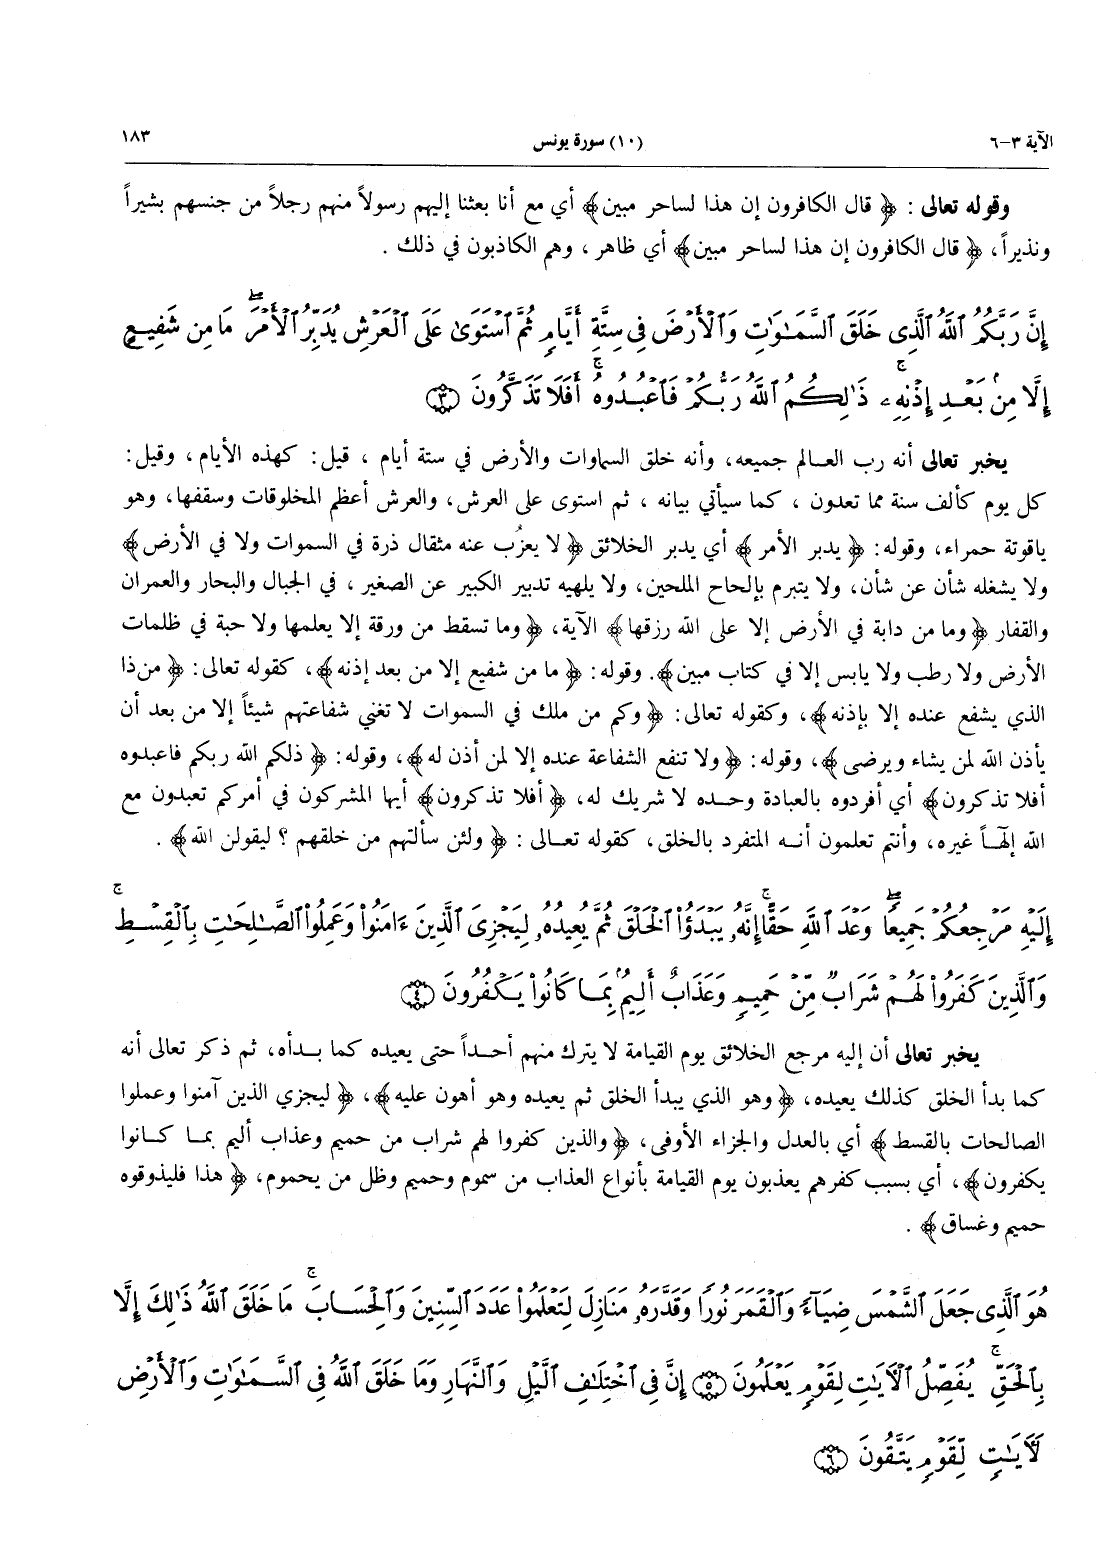 الآية ٣-٦ (١٠) سورة يونس ١٨٣
وقوله تعالى : ﴿ قال الكافرون إن هذا لساحر مبين﴾ أي مع أنا بعثنا إليهم رسولاً منهم رجلاً من جنسهم بشيراً
ونذيراً، ﴿ قال الكافرون إن هذا لساحر مبين﴾ أي ظاهر ، وهم الكاذبون في ذلك .
إِنَّ رَبَّكُمُ ٱللَّهُ ٱلَّذِى خَلَقَ ٱلسَّمَـٰوَٰتِ وَٱلْأَرْضَ فِى سِتَّةِ أَيَّامٍ ثُمَّ ٱسْتَوَىٰ عَلَى ٱلْعَرْشِ يُدَبِّرُ ٱلْأَمْرَۖ مَا مِن شَفِيعٍ
إِلَّا مِنۢ بَعْدِ إِذْنِهِۦۚ ذَٰلِكُمُ ٱللَّهُ رَبُّكُمْ فَٱعْبُدُوهُۚ أَفَلَا تَذَكَّرُونَ ٣
يخبر تعالى أنه رب العالم جميعه، وأنه خلق السماوات والأرض في ستة أيام ، قيل: كهذه الأيام ، وقيل:
كل يوم كألف سنة مما تعدون ، كما سيأتي بيانه ، ثم استوى على العرش، والعرش أعظم المخلوقات وسقفها، وهو
ياقوتة حمراء، وقوله: ﴿ يدبر الأمر ﴾ أي يدبر الخلائق ﴿ لا يعزُب عنه مثقال ذرة في السموات ولا في الأرض﴾
ولا يشغله شأن عن شأن، ولا يتبرم بإلحاح الملحين، ولا يلهيه تدبير الكبير عن الصغير ، في الجبال والبحار والعمران
والقفار ﴿ وما من دابة في الأرض إلا على الله رزقها﴾ الآية، ﴿ وما تسقط من ورقة إلا يعلمها ولا حبة في ظلمات
الأرض ولا رطب ولا يابس إلا في كتاب مبين﴾. وقوله: ﴿ ما من شفيع إلا من بعد إذنه﴾، كقوله تعالى: ﴿ من ذا
الذي يشفع عنده إلا بإذنه﴾، وكقوله تعالى: ﴿ وكم من ملك في السموات لا تغني شفاعتهم شيئاً إلا من بعد أن
يأذن الله لمن يشاء ويرضى﴾، وقوله: ﴿ ولا تنفع الشفاعة عنده إلا لمن أذن له﴾، وقوله: ﴿ ذلكم الله ربكم فاعبدوه
أفلا تذكرون﴾ أي أفردوه بالعبادة وحده لا شريك له، ﴿ أفلا تذكرون﴾ أيها المشركون في أمركم تعبدون مع
الله إلٓهاً غيره، وأنتم تعلمون أنه المتفرد بالخلق، كقوله تعالى : ﴿ ولئن سألتهم من خلقهم ؟ ليقولن الله﴾ .
إِلَيْهِ مَرْجِعُكُمْ جَمِيعًاۖ وَعْدَ ٱللَّهِ حَقًّاۚ إِنَّهُۥ يَبْدَؤُا۟ ٱلْخَلْقَ ثُمَّ يُعِيدُهُۥ لِيَجْزِىَ ٱلَّذِينَ ءَامَنُوا۟ وَعَمِلُوا۟ ٱلصَّـٰلِحَـٰتِ بِٱلْقِسْطِۚ
وَٱلَّذِينَ كَفَرُوا۟ لَهُمْ شَرَابٌ مِّنْ حَمِيمٍ وَعَذَابٌ أَلِيمٌۢ بِمَا كَانُوا۟ يَكْفُرُونَ ٤
يخبر تعالى أن إليه مرجع الخلائق يوم القيامة لا يترك منهم أحداً حتى يعيده كما بدأه، ثم ذكر تعالى أنه
كما بدأ الخلق كذلك يعيده، ﴿ وهو الذي يبدأ الخلق ثم يعيده وهو أهون عليه﴾، ﴿ ليجزي الذين آمنوا وعملوا
الصالحات بالقسط ﴾ أي بالعدل والجزاء الأوفى، ﴿ والذين كفروا لهم شراب من حميم وعذاب أليم بما كانوا
يكفرون﴾، أي بسبب كفرهم يعذبون يوم القيامة بأنواع العذاب من سموم وحميم وظل من يحموم، ﴿ هذا فليذوقوه
حميم وغساق﴾ .
هُوَ ٱلَّذِى جَعَلَ ٱلشَّمْسَ ضِيَآءً وَٱلْقَمَرَ نُورًا وَقَدَّرَهُۥ مَنَازِلَ لِتَعْلَمُوا۟ عَدَدَ ٱلسِّنِينَ وَٱلْحِسَابَۚ مَا خَلَقَ ٱللَّهُ ذَٰلِكَ إِلَّا
بِٱلْحَقِّۚ يُفَصِّلُ ٱلْـَٔايَـٰتِ لِقَوْمٍ يَعْلَمُونَ ٥ إِنَّ فِى ٱخْتِلَـٰفِ ٱلَّيْلِ وَٱلنَّهَارِ وَمَا خَلَقَ ٱللَّهُ فِى ٱلسَّمَـٰوَٰتِ وَٱلْأَرْضِ
لَـَٔايَـٰتٍ لِّقَوْمٍ يَتَّقُونَ ٦